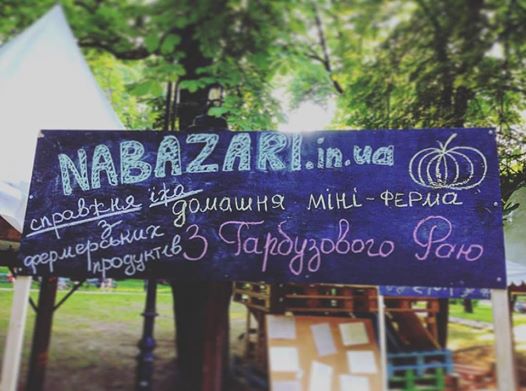 NABAZARI.in.ua
справжня їжа
з
фермерських
продуктів
домашня міні-ферма
З Гарбузового Раю